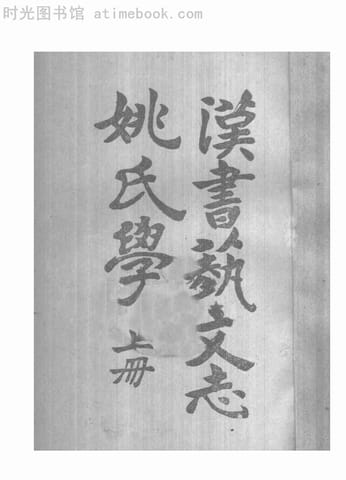 时光图书馆 atimebook.com
漢書藝文志
姚氏學 上冊